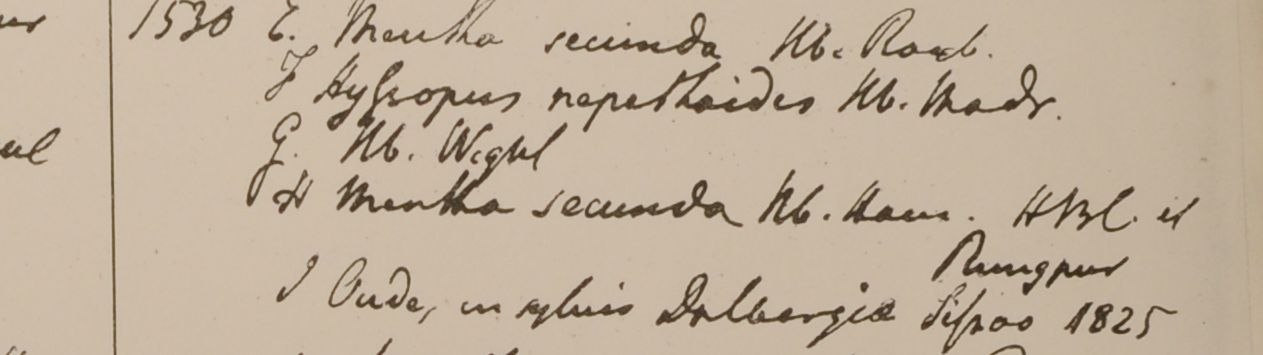 1530 E. Mentha secunda Hb. Roxb.
F Hyſsopus nepethoides Hb. Madr.
G. Hb. Wight
H Mentha secunda Hb. Ham. HBC. et
Rungpur
I Oude, in sylvis Dalbergiæ Siſsoo 1825